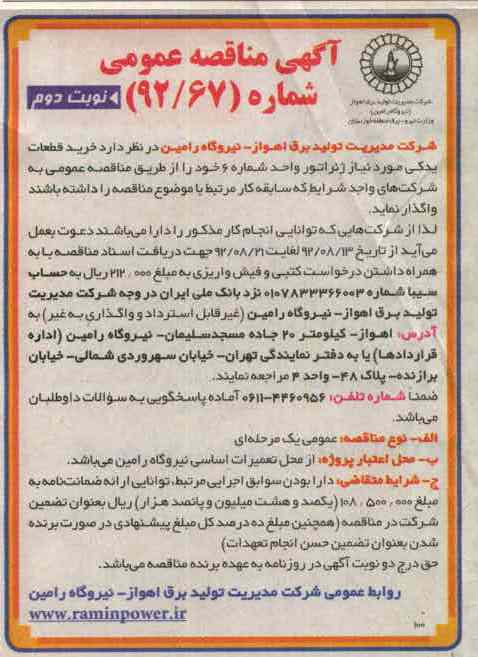 آگهی مناقصه عمومی
شماره (۹۲/۶۷)
نوبت دوم
شرکت مدیریت تولید برق اهواز
(نیروگاه رامین)
شرکت مدیریت تولید برق اهواز- نیروگاه رامین در نظر دارد خرید قطعات
یدکی مورد نیاز ژنراتور واحد شماره ۶ خود را از طریق مناقصه عمومی به
شرکت‌های واجد شرایط که سابقه کار مرتبط با موضوع مناقصه را داشته باشند
واگذار نماید.
لذا از شرکت‌هایی که توانایی انجام کار مذکور را دارا می‌باشند دعوت بعمل
می‌آید از تاریخ ۹۲/۰۸/۱۳ لغایت ۹۲/۰۸/۲۱ جهت دریافت اسناد مناقصه با به
همراه داشتن درخواست کتبی و فیش واریزی به مبلغ ۲۱۲,۰۰۰ ریال به حساب
سیبا شماره ۰۱۰۷۸۳۳۳۶۶۰۰۳ نزد بانک ملی ایران در وجه شرکت مدیریت
تولید برق اهواز- نیروگاه رامین (غیرقابل استرداد و واگذاری به غیر) به
آدرس: اهواز- کیلومتر ۲۰ جاده مسجدسلیمان- نیروگاه رامین (اداره
قراردادها) یا به دفتر نمایندگی تهران- خیابان سهروردی شمالی- خیابان
برازنده- پلاک ۴۸- واحد ۴ مراجعه نمایند.
ضمنا شماره تلفن: ۴۴۶۰۹۵۶-۰۶۱۱ آماده پاسخگویی به سؤالات داوطلبان
می‌باشد.
الف- نوع مناقصه: عمومی یک مرحله‌ای
ب- محل اعتبار پروژه: از محل تعمیرات اساسی نیروگاه رامین می‌باشد.
ج- شرایط متقاضی: دارا بودن سوابق اجرایی مرتبط، توانایی ارائه ضمانت‌نامه به
مبلغ ۱۰۸,۵۰۰,۰۰۰ (یکصد و هشت میلیون و پانصد هزار) ریال بعنوان تضمین
شرکت در مناقصه (همچنین مبلغ ده درصد کل مبلغ پیشنهادی در صورت برنده
شدن بعنوان تضمین حسن انجام تعهدات)
حق درج دو نوبت آگهی در روزنامه به عهده برنده مناقصه می‌باشد.
روابط عمومی شرکت مدیریت تولید برق اهواز- نیروگاه رامین
www.raminpower.ir